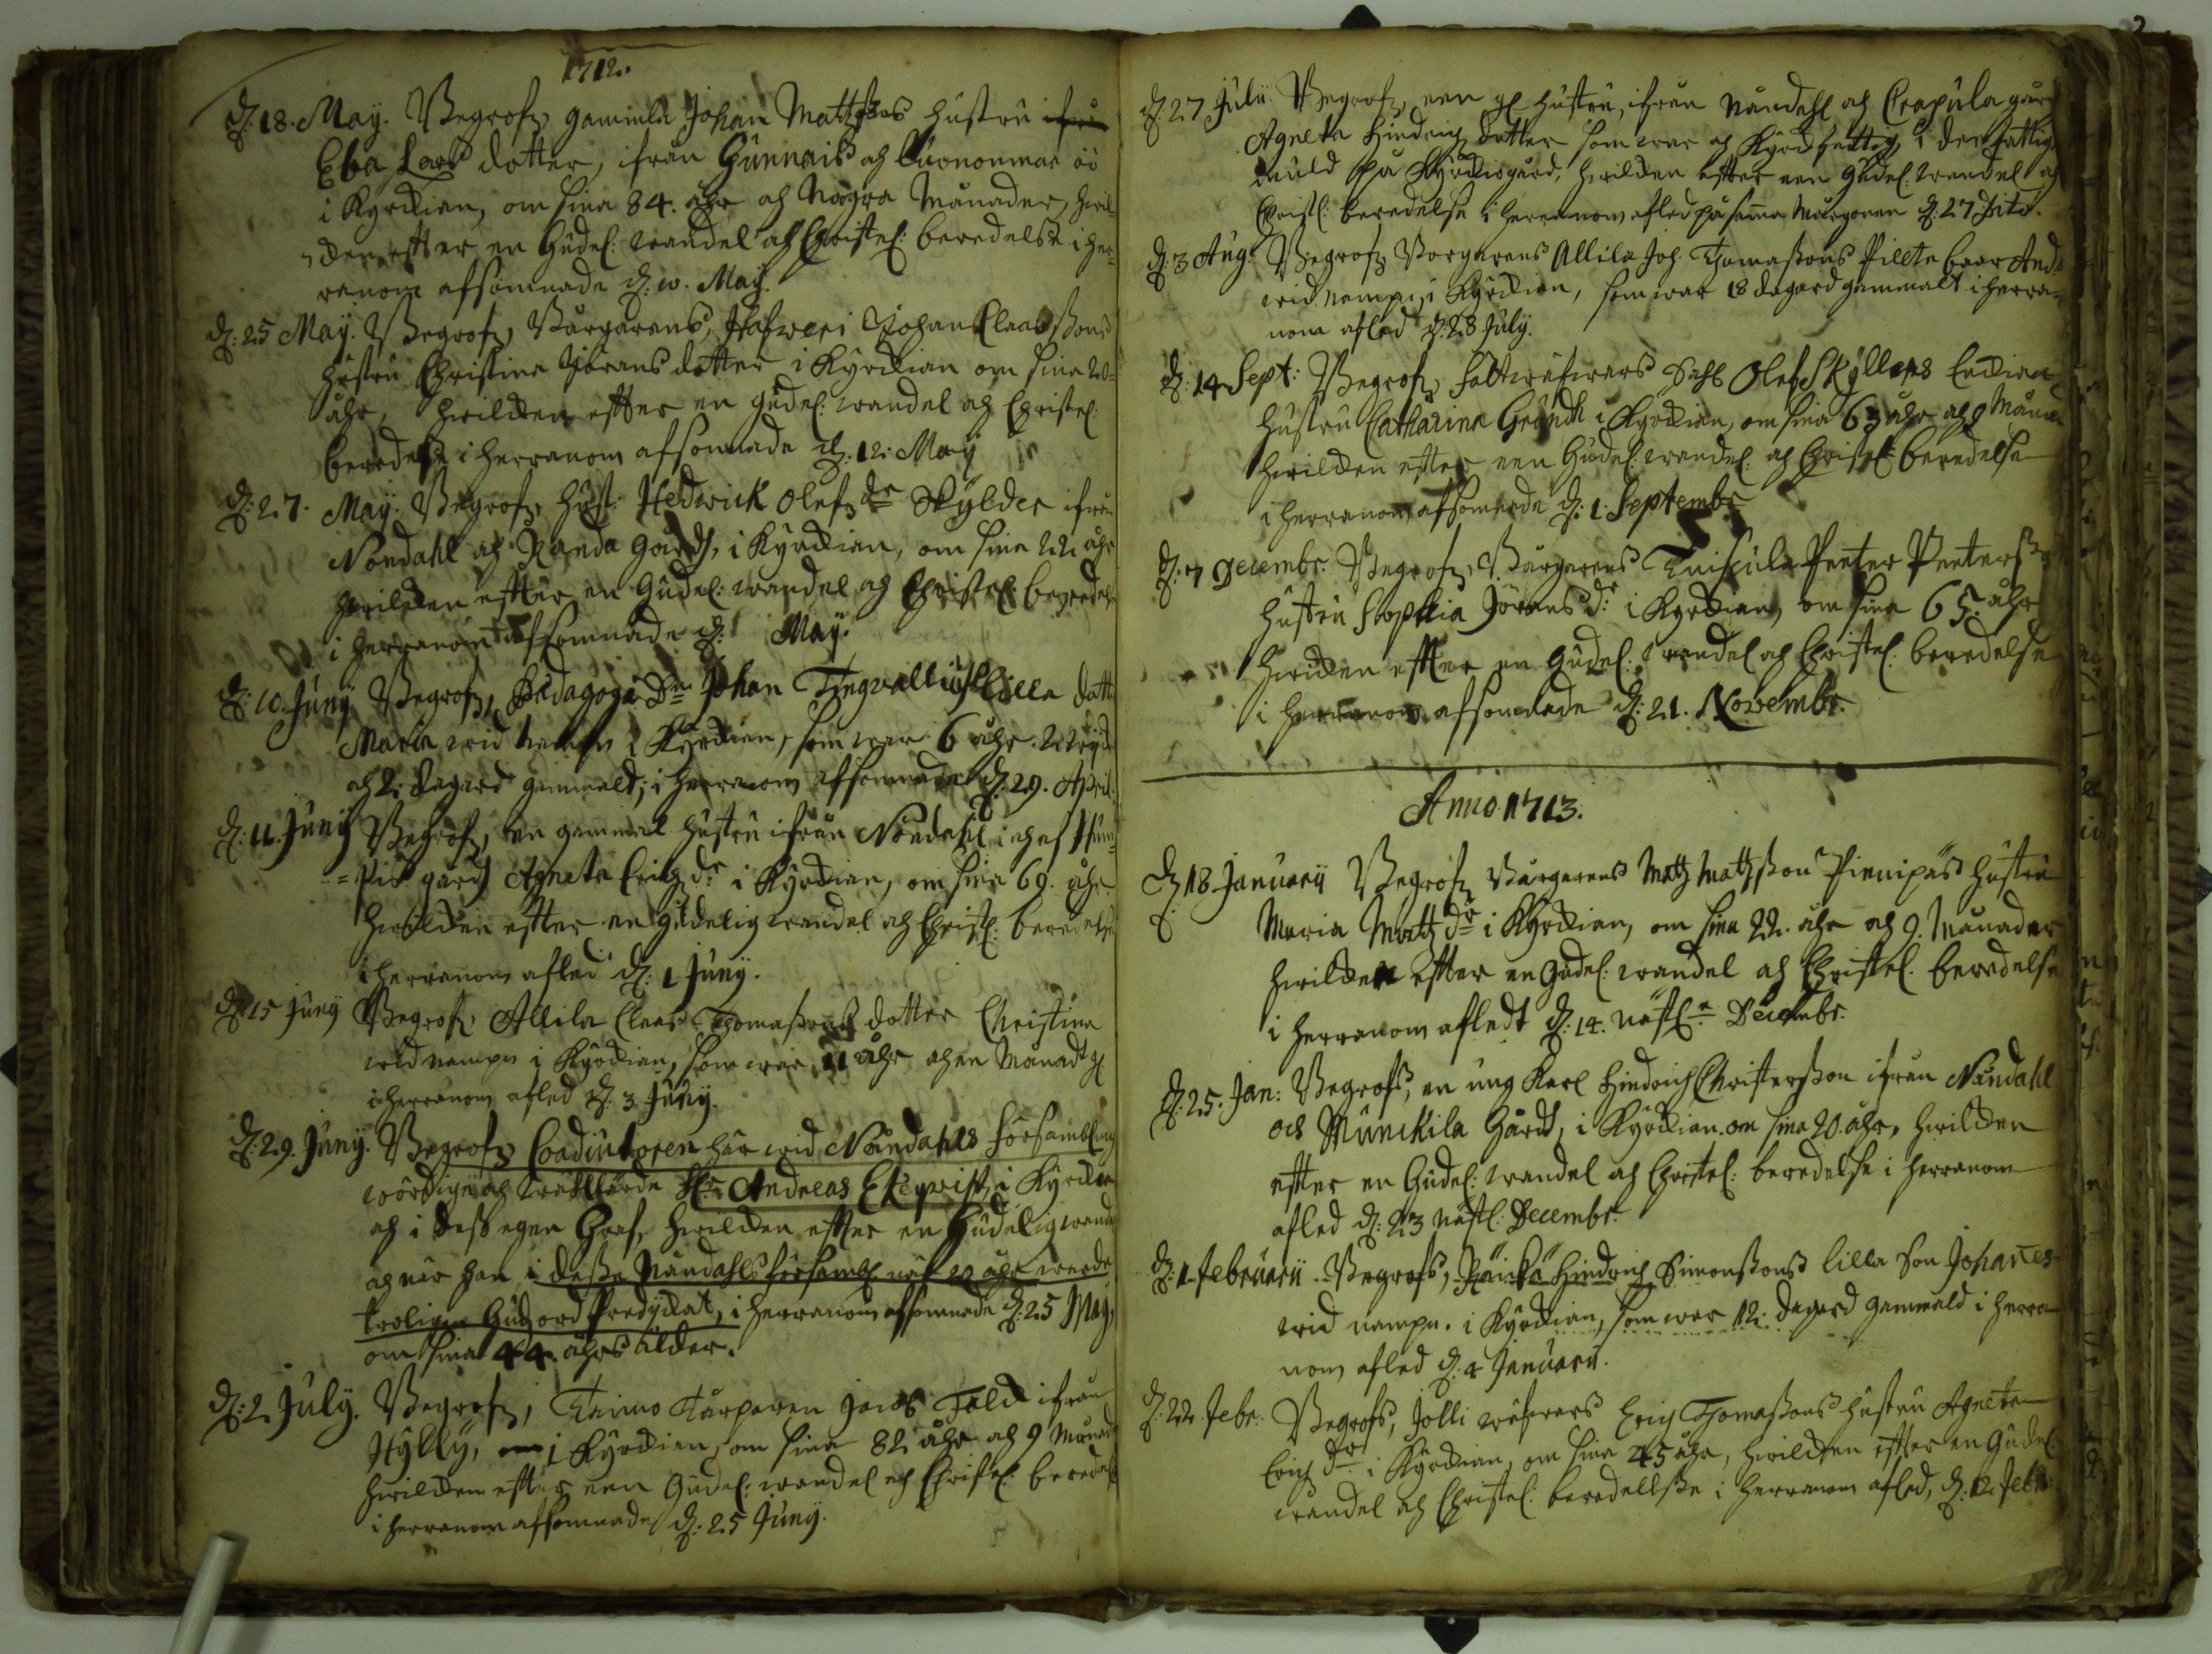 1712.
d: 18. May. Begrofz gammla Johan Mattzsons hustru
Eba Lars dotter, ifrån Gunnais och Luononmaa öö
i Kyrckian, om sina 84. åhr och några Månader, hwil-
cken effter en Gudel: wandel och Christel: beredelse i her-
ranom afsomnade d: 10. May.
d: 25 May. Begrofz, Bårgarens, Hafweri Johan Claessons
hustru Christina Jörans dotter i Kyrckian om sina 20
åhr, hwilcken effter en gudel: wandel och Christel:
beredelse i herranom afsomnade d: 12. May
d: 27. May. Begrofz, hust: Hedwick Olefz dr Skylder ifrån
Nondahl och Randa gård, i Kyrckian, om sina 22 åhr
hwilcken effter en Gudel: wandel och Christel: beredelse
i herranom afsomnade d: May.
d: 10. Juny Begrofz, Pædagogi Dn Johan Tingvallius lilla dotter
Maria wid nampn i Kyrckian, som war 6 åhr
och 2. dagard gammalt, i herranom afsomnade d: 29. April.
d: 11. Juny Begrofz, en gammal hustru ifrån Nondahl
gård Agneta Erichz dr i Kyrckian, om sina 69. åhr.
hwilcken effter en gudelig wandel och Christl: beredelse
i herranom afled d: 1 Juny.
d: 15 Juny Begrofz Allila Claes Thomassons dotter Christina
wid nampn i Kyrckian, som war 11 åhr och en Månadt gl
i herranom afled d: 3 Juny.
d: 29. Juny. Begrofz Coadjutoren här wid Nåndahls försambling
wördige och wällärde Hr Andreas Ekeqvist, i Kyrckian
och i dess egen Graf, hwilcken effter en Gudelig wandel
och när han i desse Nåndahls församl: när 20 åhr warde
troligen Gudz ord Predyckat, i herranom afsomnade d: 25 May,
om sina 44. åhrs ålder.
d: 2. July. Begrofz, Taimo Tarparen Jacob Told ifrån
Hylly, i Kyrckian, om sina 82 åhr och 9 Månad
hwilcken effter een Gudel: wandel och Christel: beredelse
i herranom afsomnade d: 25 Juny.
d: 27 Julii Begrofz, een gl hustru, ifrån Nåndahl och Crapula gård
Agneta Hindrich dotter som war och Kyrck fattig, i de fattigas
muld på Kyrckiogård, hwilcken effter een Gudel: wandel och
Christl: beredelse i herranom afled på samma Morgonen d: 27 Dito.
d: 3 Aug: Begrofz Borgarens Allila Joh. Thomassons Pillte baar And:
wid nampn, i Kyrckian, som war 18 dagard gammalt i herra-
nom afled d: 28 July.
d: 14 Sept: Begrofz Sahl Olef Skyllers Enckian
hustru Catharina Gründt i Kyrckian, om sina 63 åhr och 9 Månad
hwilcken effter een Gudel: wandel: och Christel: beredelse
i herranom afsomnade d: 1. Septembr
d: 7 Decembr. Begrofz, Bårgarens Tuifula Peeter Peeterss
hustru Sophia Jörans dr i Kyrckian, om sina 65. åhr
hwilcken effter en Gudel: wandel och Christel: beredelse
i herranom afsomnade d: 21. Novembr.
Anno 1713.
d: 18. Januarii Begrofz Bårgarens Mattz Mattzsson Pienipäs hustru
Maria Mattz dr i Kyrckian, om sina 22. åhr och 9. Månader
hwilcken effter en Gudel: wandel och Christel: beredelse
i herranom afledt d: 14. nästl: Decembr.
d: 25. Jan: Begrofs, en ung Karl Hindrich Christersson ifrån Nåndahl
och Munckila Gård, i Kyrckian om sina 20. åhr, hwilcken
effter en Gudel: wandel och Christel: beredelse i herranom
afled d: 23 nästl: Decembr.
d: 1 Februarii Begrofs, Räickä Hindrich Simonssons lilla Son Johanes
wid nampn. i Kyrckian, som war 12. dagard gammald i herra
nom afled d: 4 Januarii.
d: 22. Febr: Begrofs, Jolli Erich Thomassons hustru Agneta
Erich dr i Kyrckian, om sina 45 åhr, hwilcken effter en Gudel:
wandel och Christel: beredellsse i herranom afled, d: 12. Febr: